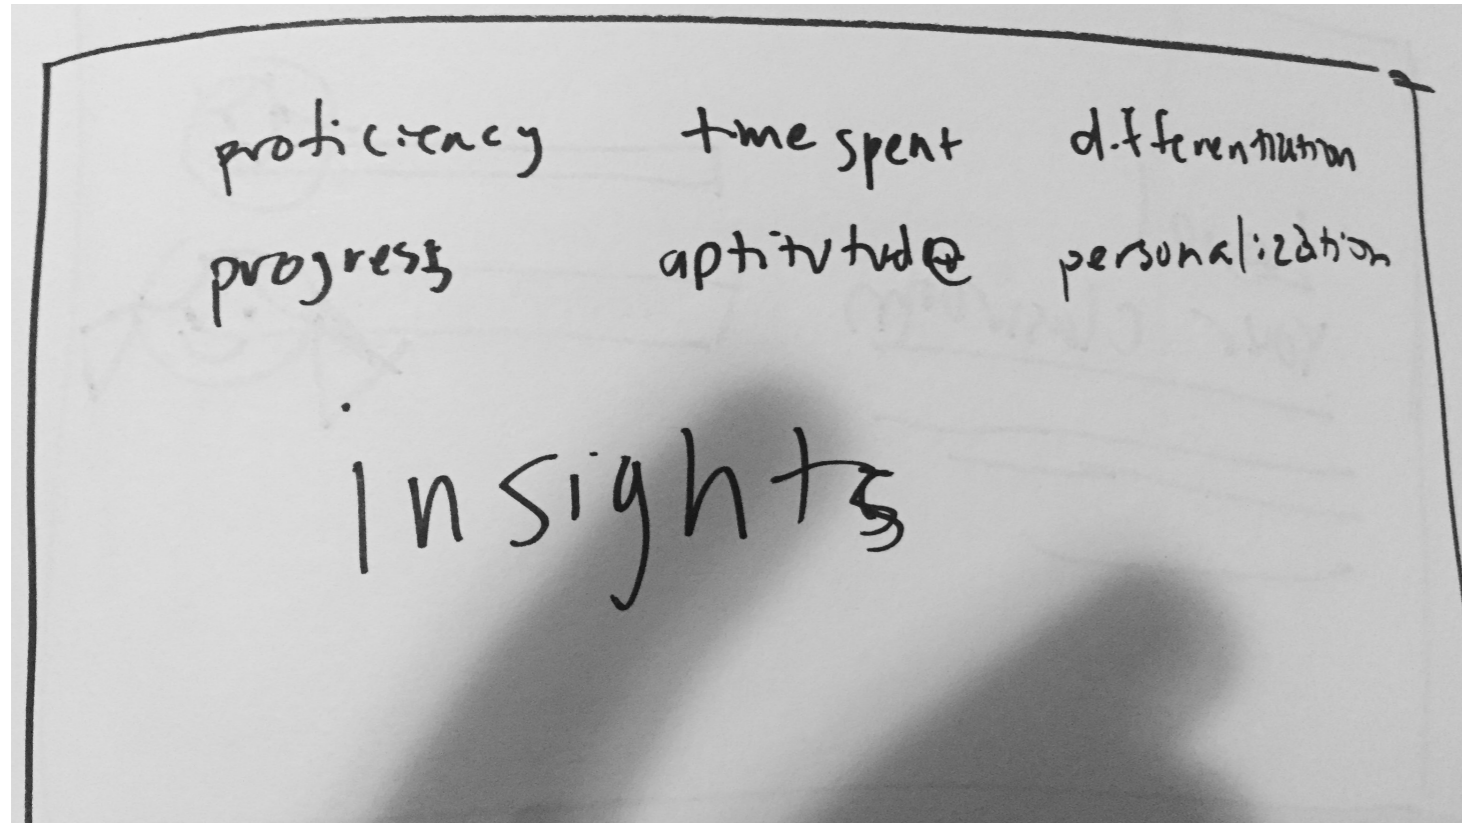 proficiency time spent differentiation
progress aptitutude personalization
insights